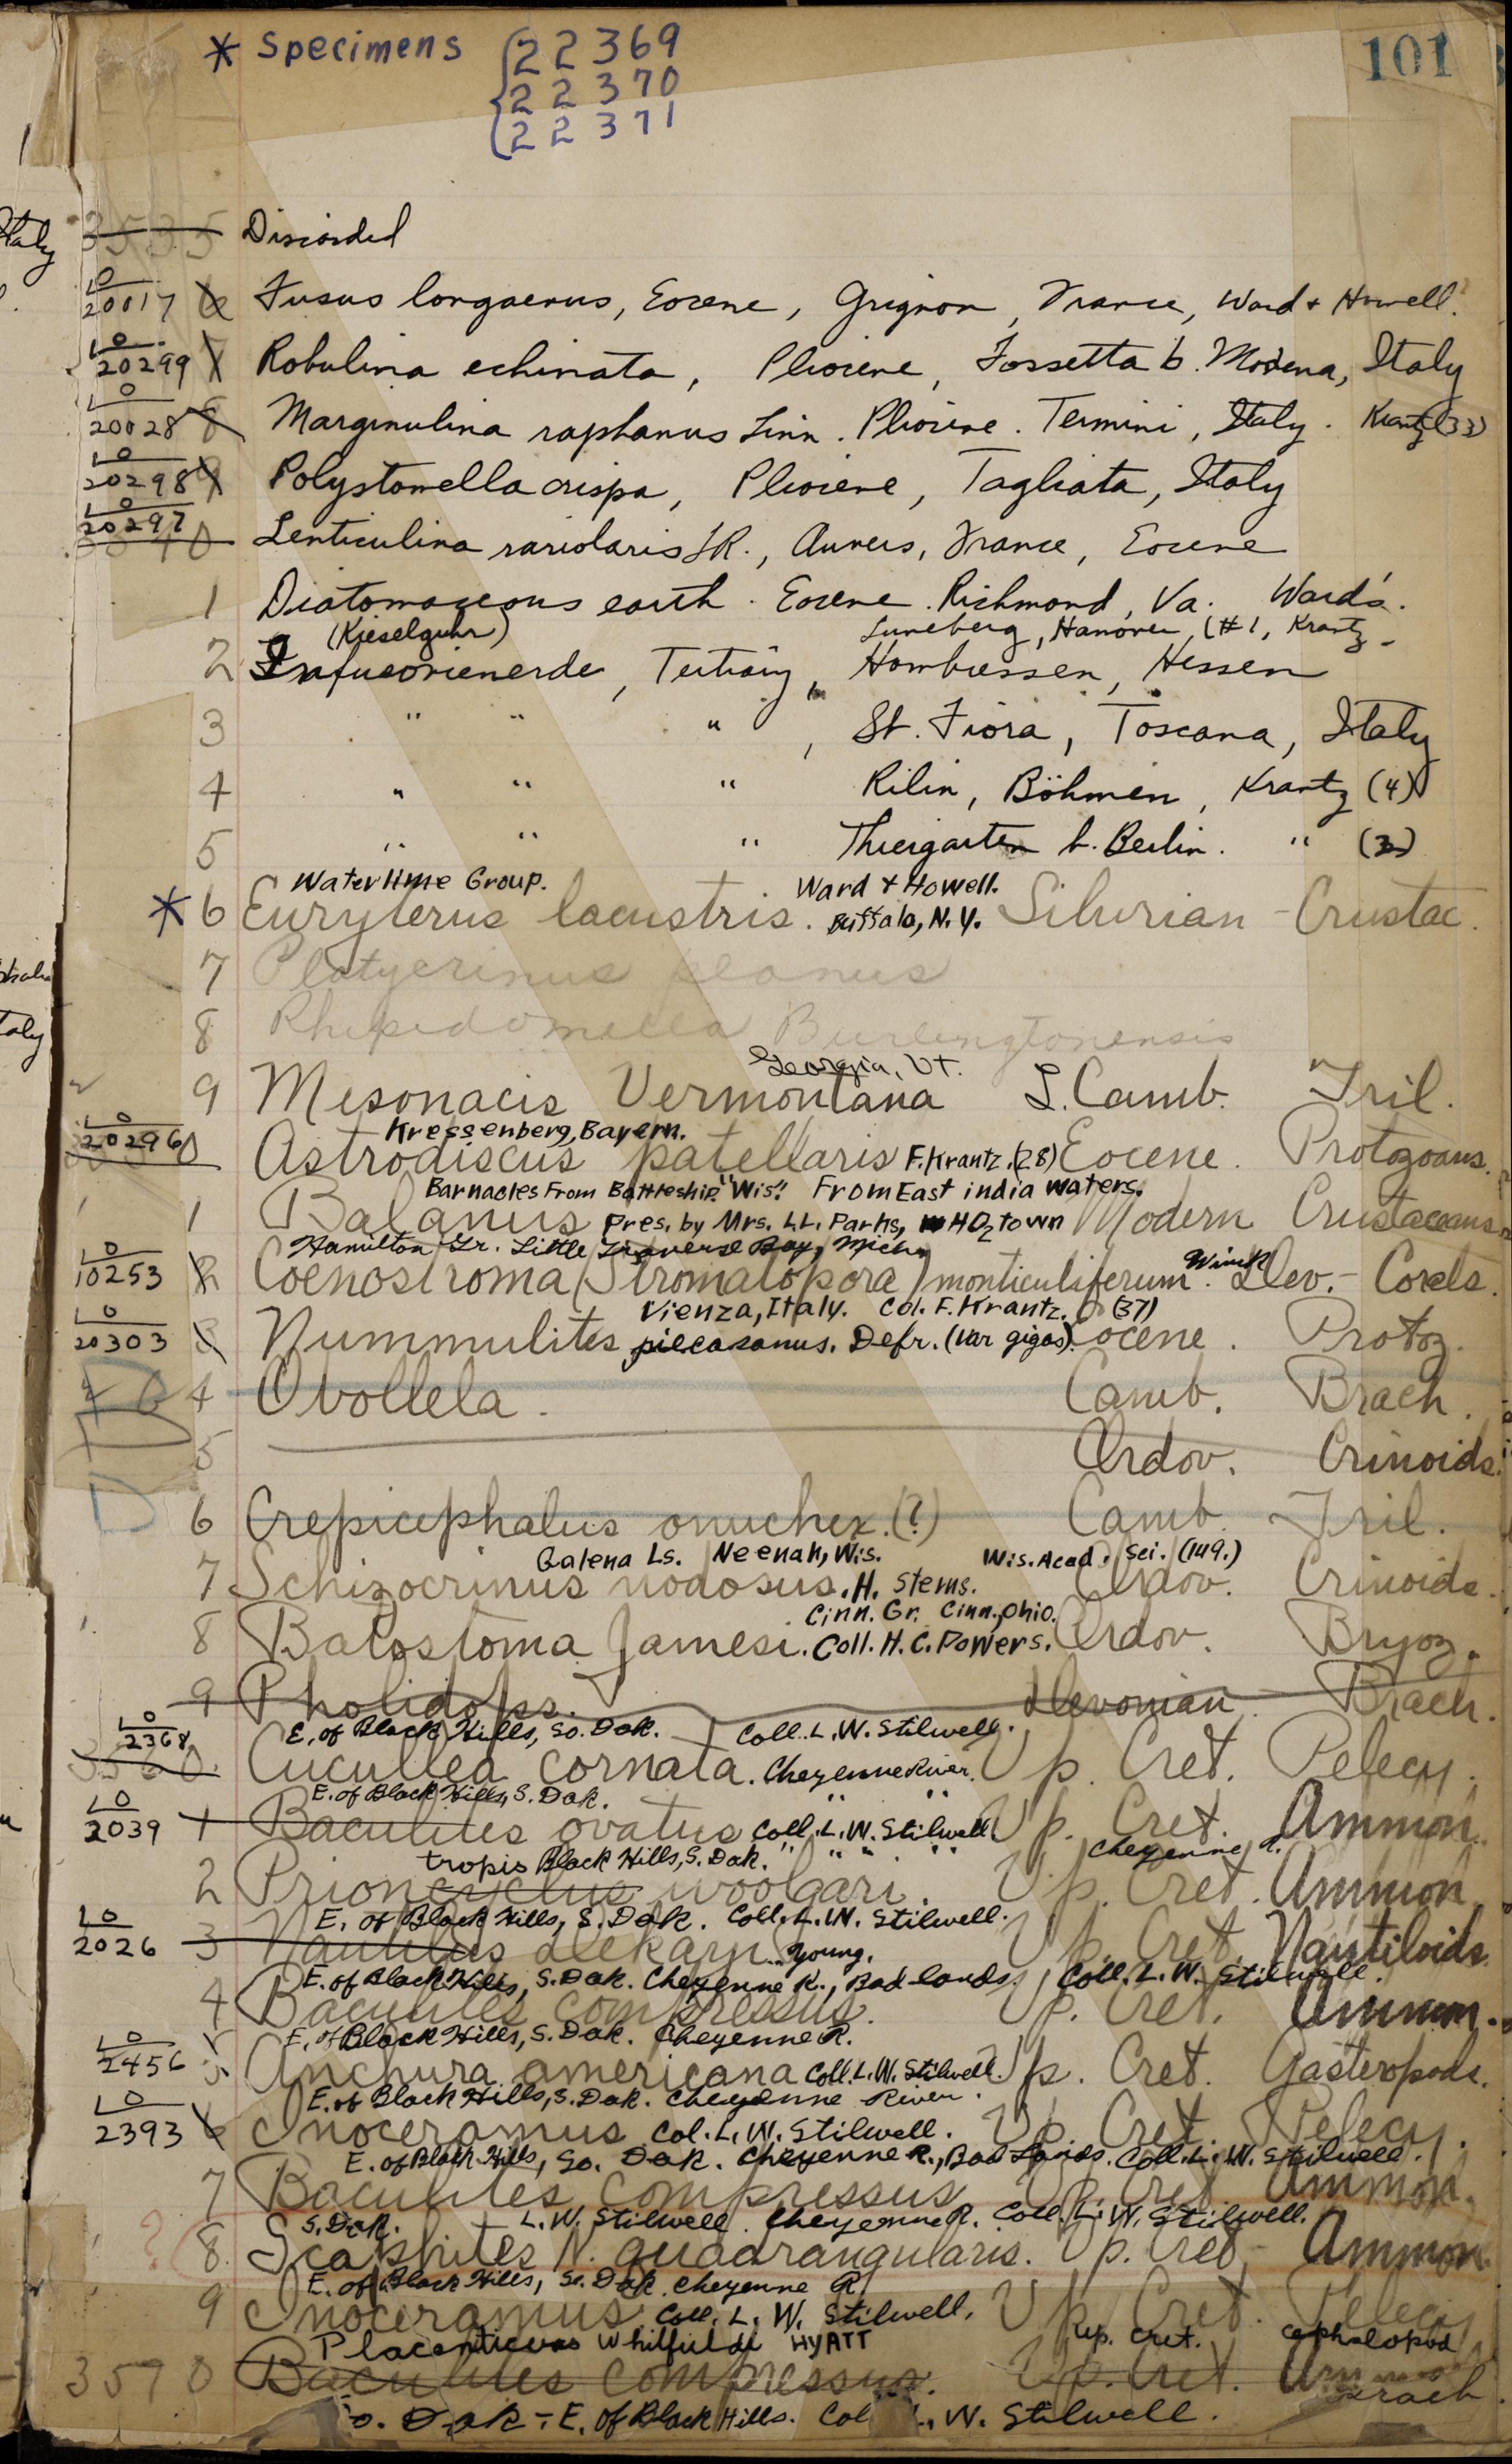 101
* Specimens { 22369
22370
22371
3535 Discarded
10
20017 6 Fusus longaevus, Eocene, Grignon, France, Ward & Howell.
10
20299 7 Robulina echinata, Pliocene, Fossetta b. Modena, Italy
10
20028 8 Marginulina raphanus Linn. Pliocene. Termini, Italy. Krantz (33)
10
20298 9 Polystomella crispa, Pliocene, Tagliata, Italy
10
20297
3540 Lenticulina variolaris, Auvers, France, Eocene
1 Diatomaceous earth. Eocene. Richmond, Va. Ward's.
(Kieselguhr) Luneberg, Hanover, (#1, Krantz
2 Infusorienerde, Tertiary, Hombressen, Hessen
3 " " " , St. Fiora, Toscana, Italy
4 " " " Bilin, Böhmen, Krantz (4)
5 " " " Thiergarten b. Berlin. " (3)
Waterlime Group. Ward & Howell.
* 6 Eurypterus lacustris. Buffalo, N.Y. Silurian - Crustac.
7 Platycrinus planus
8 Rhipidomella Burlingtonensis
Georgia, Vt.
9 Mesonacis Vermontana L. Camb. Tril.
10
20296 Kressenberg, Bayern.
0 Astrodiscus patellaris F. Krantz. (28) Eocene. Protozoans.
Barnacles From Battleship "Wis". From East india waters.
1 Balanus Pres. by Mrs. L.L. Parks, HO2town Modern Crustaceans
Hamilton Gr. Little Traverse Bay, Mich.
10
10253 2 Coenostroma (Stromatopora) monticuliferum. Winch Dev. - Corals.
Vienza, Italy. Col. F. Krantz. (37)
10
20303 3 Nummulites Defr. (var gigas). Eocene. Protoz.
4 Obollela. Camb. Brach.
5 Ordov. Crinoids.
6 Crepicephalus onuchex. (?) Camb. Tril.
Galena Ls. Neenah, Wis. Wis. Acad. Sci. (149.)
7 Schizocrinus nodosus. H. Stems. Ordov. Crinoids.
Cinn. Gr. Cinn., Ohio.
8 Batostoma Jamesi. Coll. H.C. Powers. Ordov. Bryoz.
9 Pholidops. Devonian Brach.
10
2368 E. of Black Hills, So. Dak. Coll. L.W. Stilwell.
3560 Cucullea cornata. Cheyenne River. Up. Cret. Pelecy.
E. of Black Hills, S. Dak. " "
10
2039 1 Baculites ovatus Coll. L.W. Stilwell Up. Cret. Ammon.
tropis Black Hills, S. Dak. " " " " Cheyenne R.
2 Prioncyclus woolgari. Up. Cret. Ammon.
10
2026 E. of Black Hills, S. Dak. Coll. L.W. Stilwell.
3 Nautilus Dekayi Young. Up. Cret. Nautiloids.
E. of Black Hills, S. Dak. Cheyenne R., Bad lands. Coll. L.W. Stilwell.
4 Baculites compressus. Up. Cret. Ammon.
E. of Black Hills, S. Dak. Cheyenne R.
10
2456 5 Anchura americana Coll. L.W. Stilwell. Up. Cret. Gasteropods.
E. of Black Hills, S. Dak. Cheyenne River.
10
2393 6 Inoceramus Col. L.W. Stilwell. Up. Cret. Pelecy.
E. of Black Hills, So. Dak. Cheyenne R., Bad Lands. Coll. L.W. Stilwell.
7 Baculites compressus Up. Cret. Ammon.
S. Dak. L.W. Stilwell. Cheyenne R. Coll. L.W. Stilwell.
? 8. Scaphites N. quadrangularis. Up. Cret. - Ammon.
E. of Black Hills, So. Dak. Cheyenne R.
9 Inoceramus Coll. L.W. Stilwell. Up. Cret. Pelecy.
Placenticeras Whitfieldi HYATT Up. Cret. Cephalopod
3570 Baculites compressus. Up. Cret.
Brach.
So. Dak - E. of Black Hills. Col L.W. Stilwell.